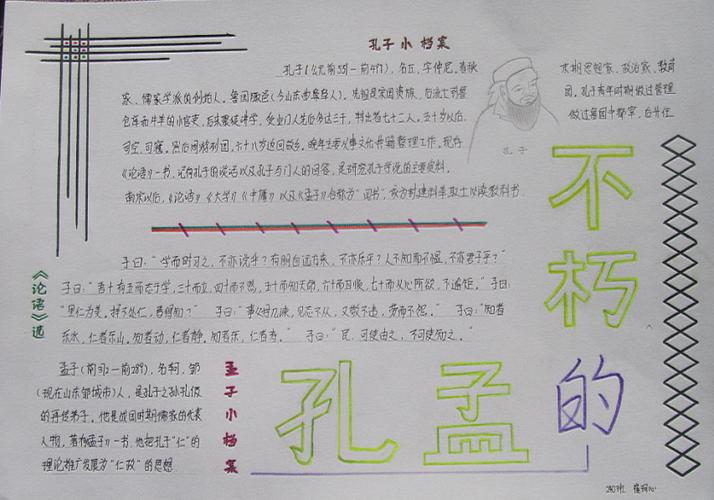 孔子小档案
孔子(公元前551—前479),名丘,字仲尼。春秋
末期思想家、政治家、教育
家、儒家学派的创始人。鲁国陬邑(今山东曲阜人)。先祖是宋国贵族
团。孔子青年时期做过管理
仓库和牛羊的小官吏,后来聚徒讲学,受业门人先后多达三千,
七十二人。五十岁以后,
做过鲁国中都宰,
司空,司寇。六十八岁返回故乡。晚年主要从事文化典籍整理工作。现存
《论语》一书,记有孔子的谈话以及孔子与门人的问答,是研究孔子学说的主要资料。
南宋以后,《论语》《大学》《中庸》以及《孟子》合称为“四书”,
孔子
不朽的
孔孟
《论语》选
子曰:“学而时习之,不亦说乎?有朋自远方来,不亦乐乎?人不知而不愠,不亦君子乎?”
子曰:“吾十有五而志于学,三十而立,四十而不惑,五十而知天命,六十而耳顺,七十而从心所欲,不逾矩。”子曰:
“里仁为美。择不处仁,焉得知?” 子曰:“事父母几谏,见志不从,又敬不违,劳而不怨。” 子曰:“知者
乐水,仁者乐山。知者动,仁者静。知者乐,仁者寿。” 子曰:“民,可使由之,不可使知之。”
孟子小档案
孟子(前372—前289),名轲,邹
(现在山东邹城市)人,是孔子之孙孔伋
的再传弟子。他是战国时期儒家的代表
人物,著有《孟子》一书。他把孔子“仁”的
理论推广发展为“仁政”的思想。